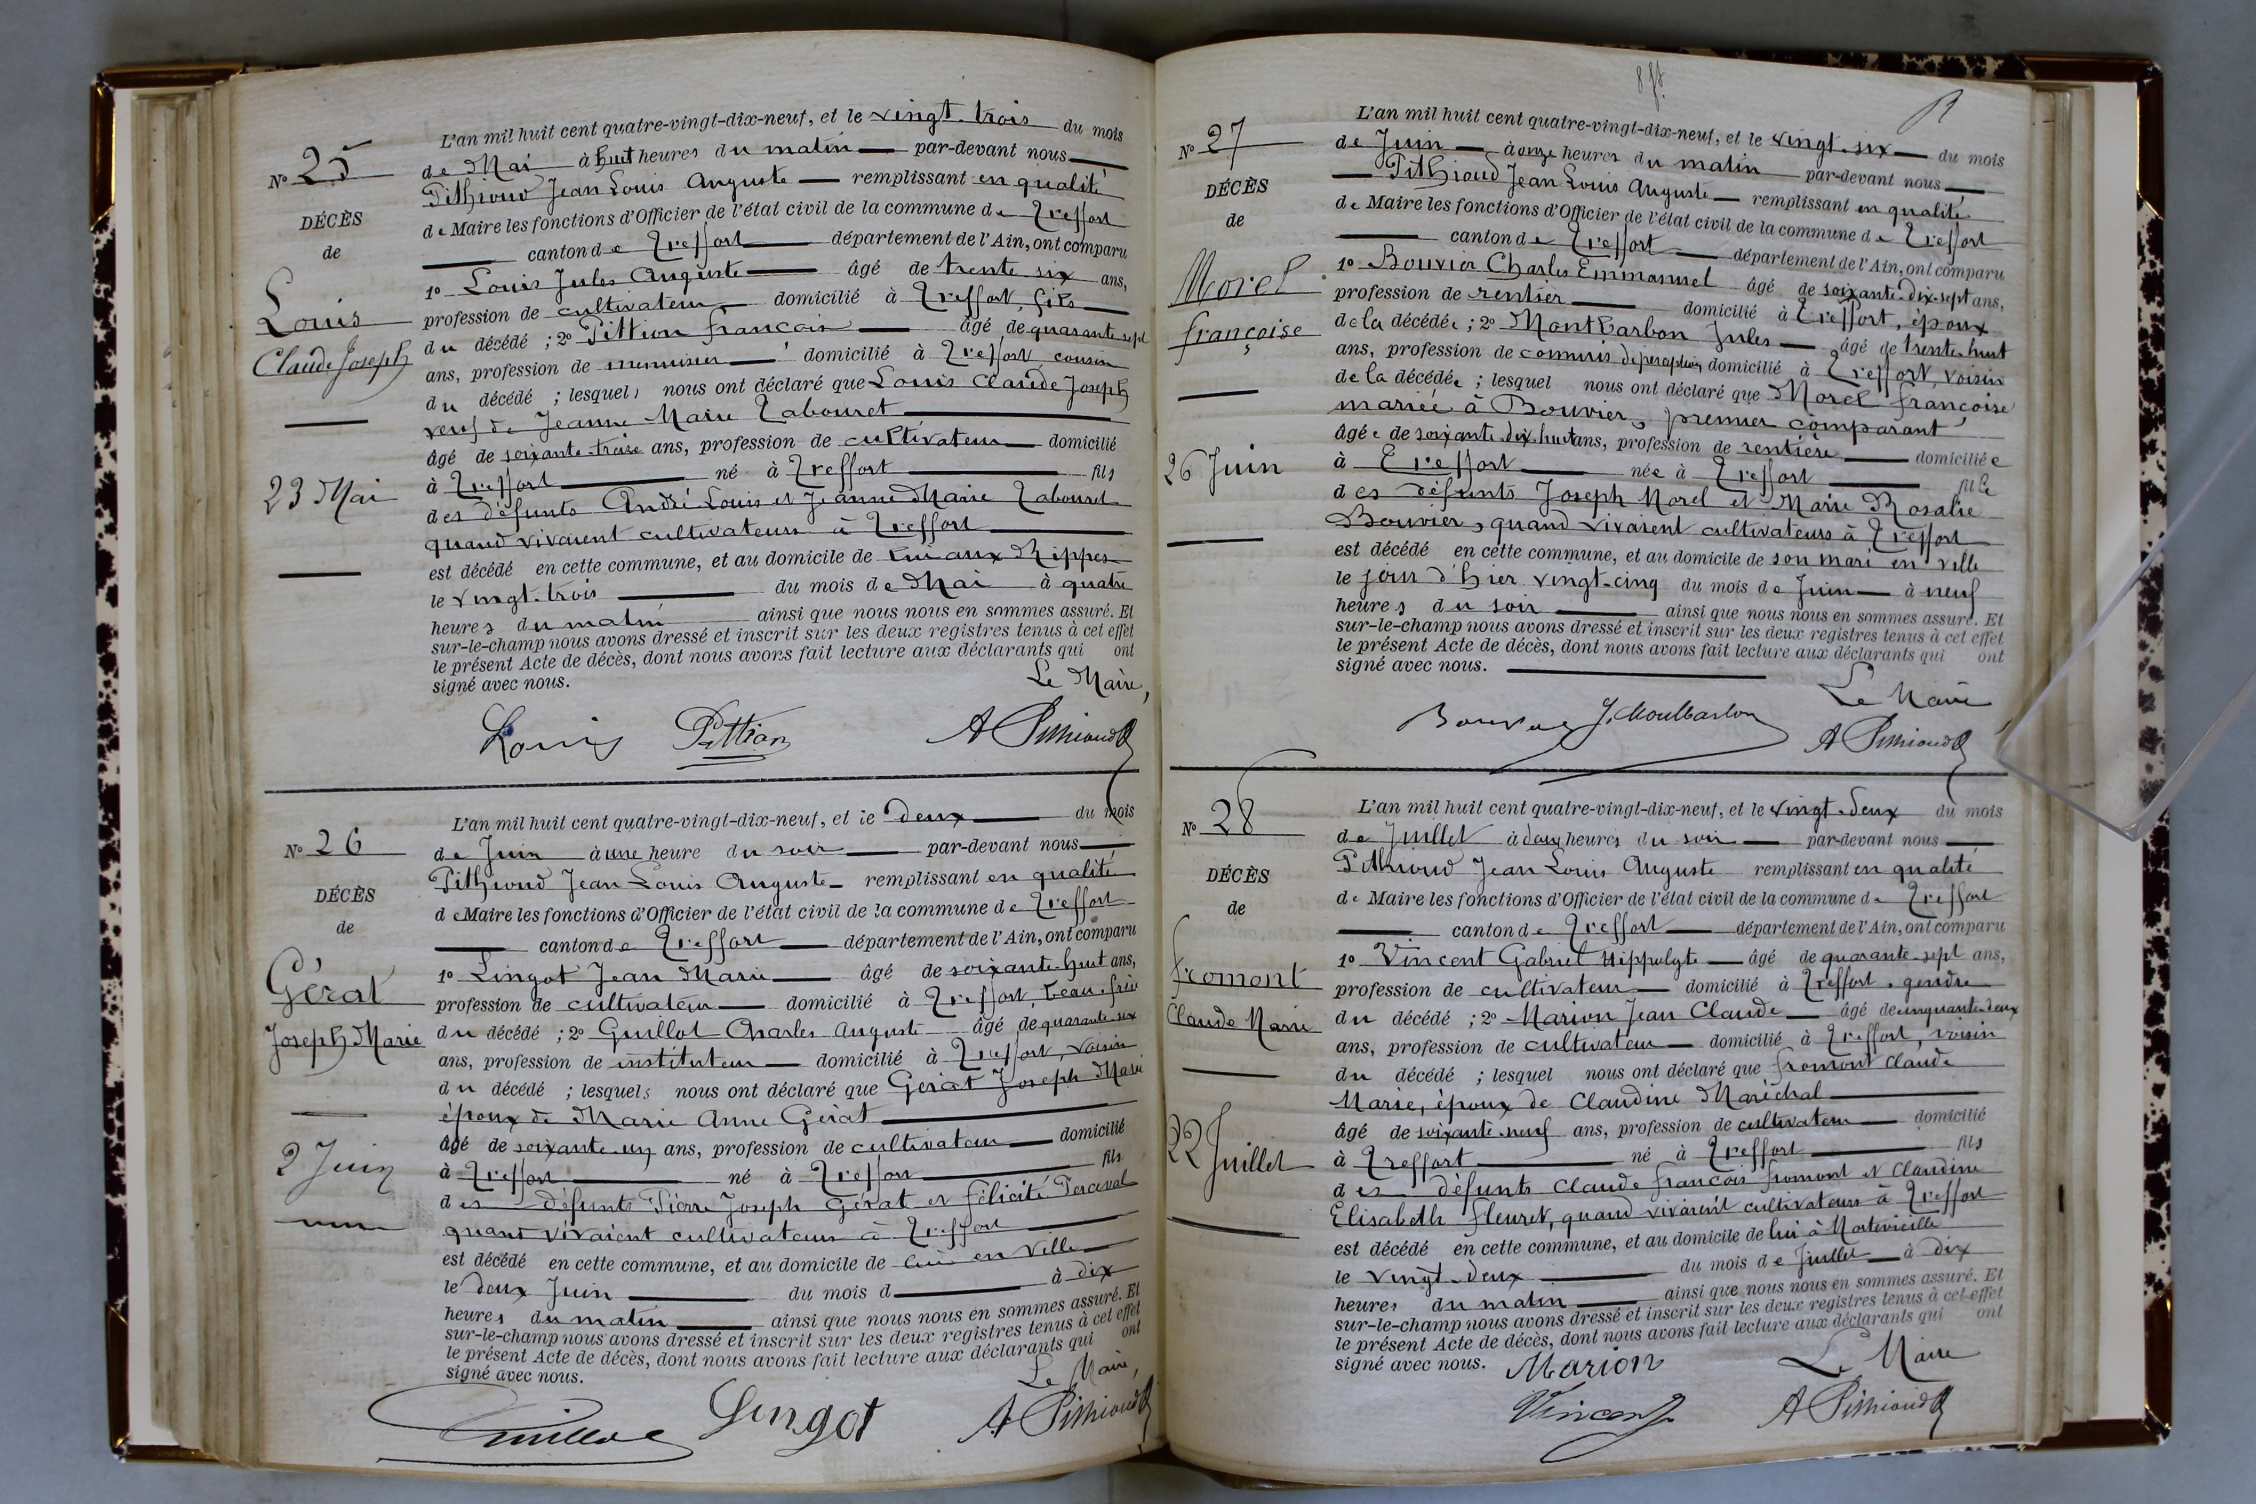 L'an mil huit cent quatre-vingt-dix-neuf, et le vingt-trois du mois
N° 25
de Mai à huit heures du matin par-devant nous
Pithioud Jean Louis Auguste remplissant en qualité
DÉCÈS
de Maire les fonctions d'Officier de l'état civil de la commune de Treffort
de
canton de Treffort département de l'Ain, ont comparu
1° Louis Jules Auguste âgé de trente six ans,
Louis
profession de cultivateur domicilié à Treffort, fils
du décédé ; 2° Pittion François âgé de quarante sept
Claude Joseph
ans, profession de menuisier domicilié à Treffort cousin
du décédé ; lesquels nous ont déclaré que Louis Claude Joseph
veuf de Jeanne Marie Tabouret
âgé de soixante-treize ans, profession de cultivateur domicilié
à Treffort né à Treffort fils
23 Mai
des défunts André Louis et Jeanne Marie Tabouret
quand vivaient cultivateurs à Treffort
est décédé en cette commune, et au domicile de lui aux Rippes
le vingt-trois du mois de Mai à quatre
heures du matin ainsi que nous nous en sommes assuré. Et
sur-le-champ nous avons dressé et inscrit sur les deux registres tenus à cet effet
le présent Acte de décès, dont nous avons fait lecture aux déclarants qui ont
signé avec nous.
Le Maire,
Louis Pittion A Pithioud
L'an mil huit cent quatre-vingt-dix-neuf, et le deux du mois
N° 26
de Juin à une heure du soir par-devant nous
Pithioud Jean Louis Auguste remplissant en qualité
DÉCÈS
de Maire les fonctions d'Officier de l'état civil de la commune de Treffort
de
canton de Treffort département de l'Ain, ont comparu
1° Lingot Jean Marie âgé de soixante-huit ans,
Gérat
profession de cultivateur domicilié à Treffort, beau-frère
Joseph Marie
du décédé ; 2° Guillot Charles Auguste âgé de quarante-six
ans, profession de instituteur domicilié à Treffort, voisin
du décédé ; lesquels nous ont déclaré que Gérat Joseph Marie
époux de Marie Anne Gérat
âgé de soixante-un ans, profession de cultivateur domicilié
2 Juin
à Treffort né à Treffort fils
des défunts Pierre Joseph Gérat et Félicité Perceval
quand vivaient cultivateurs à Treffort
est décédé en cette commune, et au domicile de lui en ville
le deux Juin du mois d à dix
heures du matin ainsi que nous nous en sommes assuré. Et
sur-le-champ nous avons dressé et inscrit sur les deux registres tenus à cet effet
le présent Acte de décès, dont nous avons fait lecture aux déclarants qui ont
signé avec nous.
Le Maire,
Guillot Lingot A Pithioud
L'an mil huit cent quatre-vingt-dix-neuf, et le vingt-six du mois
N° 27
de Juin à onze heures du matin par-devant nous
Pithioud Jean Louis Auguste remplissant en qualité
DÉCÈS
de Maire les fonctions d'Officier de l'état civil de la commune de Treffort
de
canton de Treffort département de l'Ain, ont comparu
1° Bouvier Charles Emmanuel âgé de soixante-dix-sept ans,
Morel
profession de rentier domicilié à Treffort, époux
françoise
de la décédée ; 2° Montbarbon Jules âgé de trente-huit
ans, profession de commis de perception domicilié à Treffort, voisin
de la décédée ; lesquel nous ont déclaré que Morel françoise
mariée à Bouvier, premier comparant
âgée de soixante-dix-huit ans, profession de rentière domiciliée
26 Juin
à Treffort née à Treffort fille
des défunts Joseph Morel et Marie Rosalie
Bouvier, quand vivaient cultivateurs à Treffort
est décédé en cette commune, et au domicile de son mari en ville
le jour d'hier vingt-cinq du mois de Juin à neuf
heures du soir ainsi que nous nous en sommes assuré. Et
sur-le-champ nous avons dressé et inscrit sur les deux registres tenus à cet effet
le présent Acte de décès, dont nous avons fait lecture aux déclarants qui ont
signé avec nous.
Le Maire
Bouvier J. Montbarbon A Pithioud
L'an mil huit cent quatre-vingt-dix-neuf, et le vingt-deux du mois
N° 28
de Juillet à deux heures du soir par-devant nous
Pithioud Jean Louis Auguste remplissant en qualité
DÉCÈS
de Maire les fonctions d'Officier de l'état civil de la commune de Treffort
de
canton de Treffort département de l'Ain, ont comparu
1° Vincent Gabriel Hippolyte âgé de quarante-sept ans,
fromont
profession de cultivateur domicilié à Treffort, gendre
Claude Marie
du décédé ; 2° Marion Jean Claude âgé de cinquante-deux
ans, profession de cultivateur domicilié à Treffort, voisin
du décédé ; lesquel nous ont déclaré que fromont Claude
Marie, époux de Claudine Maréchal
âgé de soixante-neuf ans, profession de cultivateur domicilié
22 Juillet
à Treffort né à Treffort fils
des défunts Claude françois fromont et Claudine
Elisabeth fleuret, quand vivaient cultivateurs à Treffort
est décédé en cette commune, et au domicile de lui à Montevieille
le vingt-deux du mois de Juillet à dix
heures du matin ainsi que nous nous en sommes assuré. Et
sur-le-champ nous avons dressé et inscrit sur les deux registres tenus à cet effet
le présent Acte de décès, dont nous avons fait lecture aux déclarants qui ont
signé avec nous.
Marion Le Maire
Vincent A Pithioud